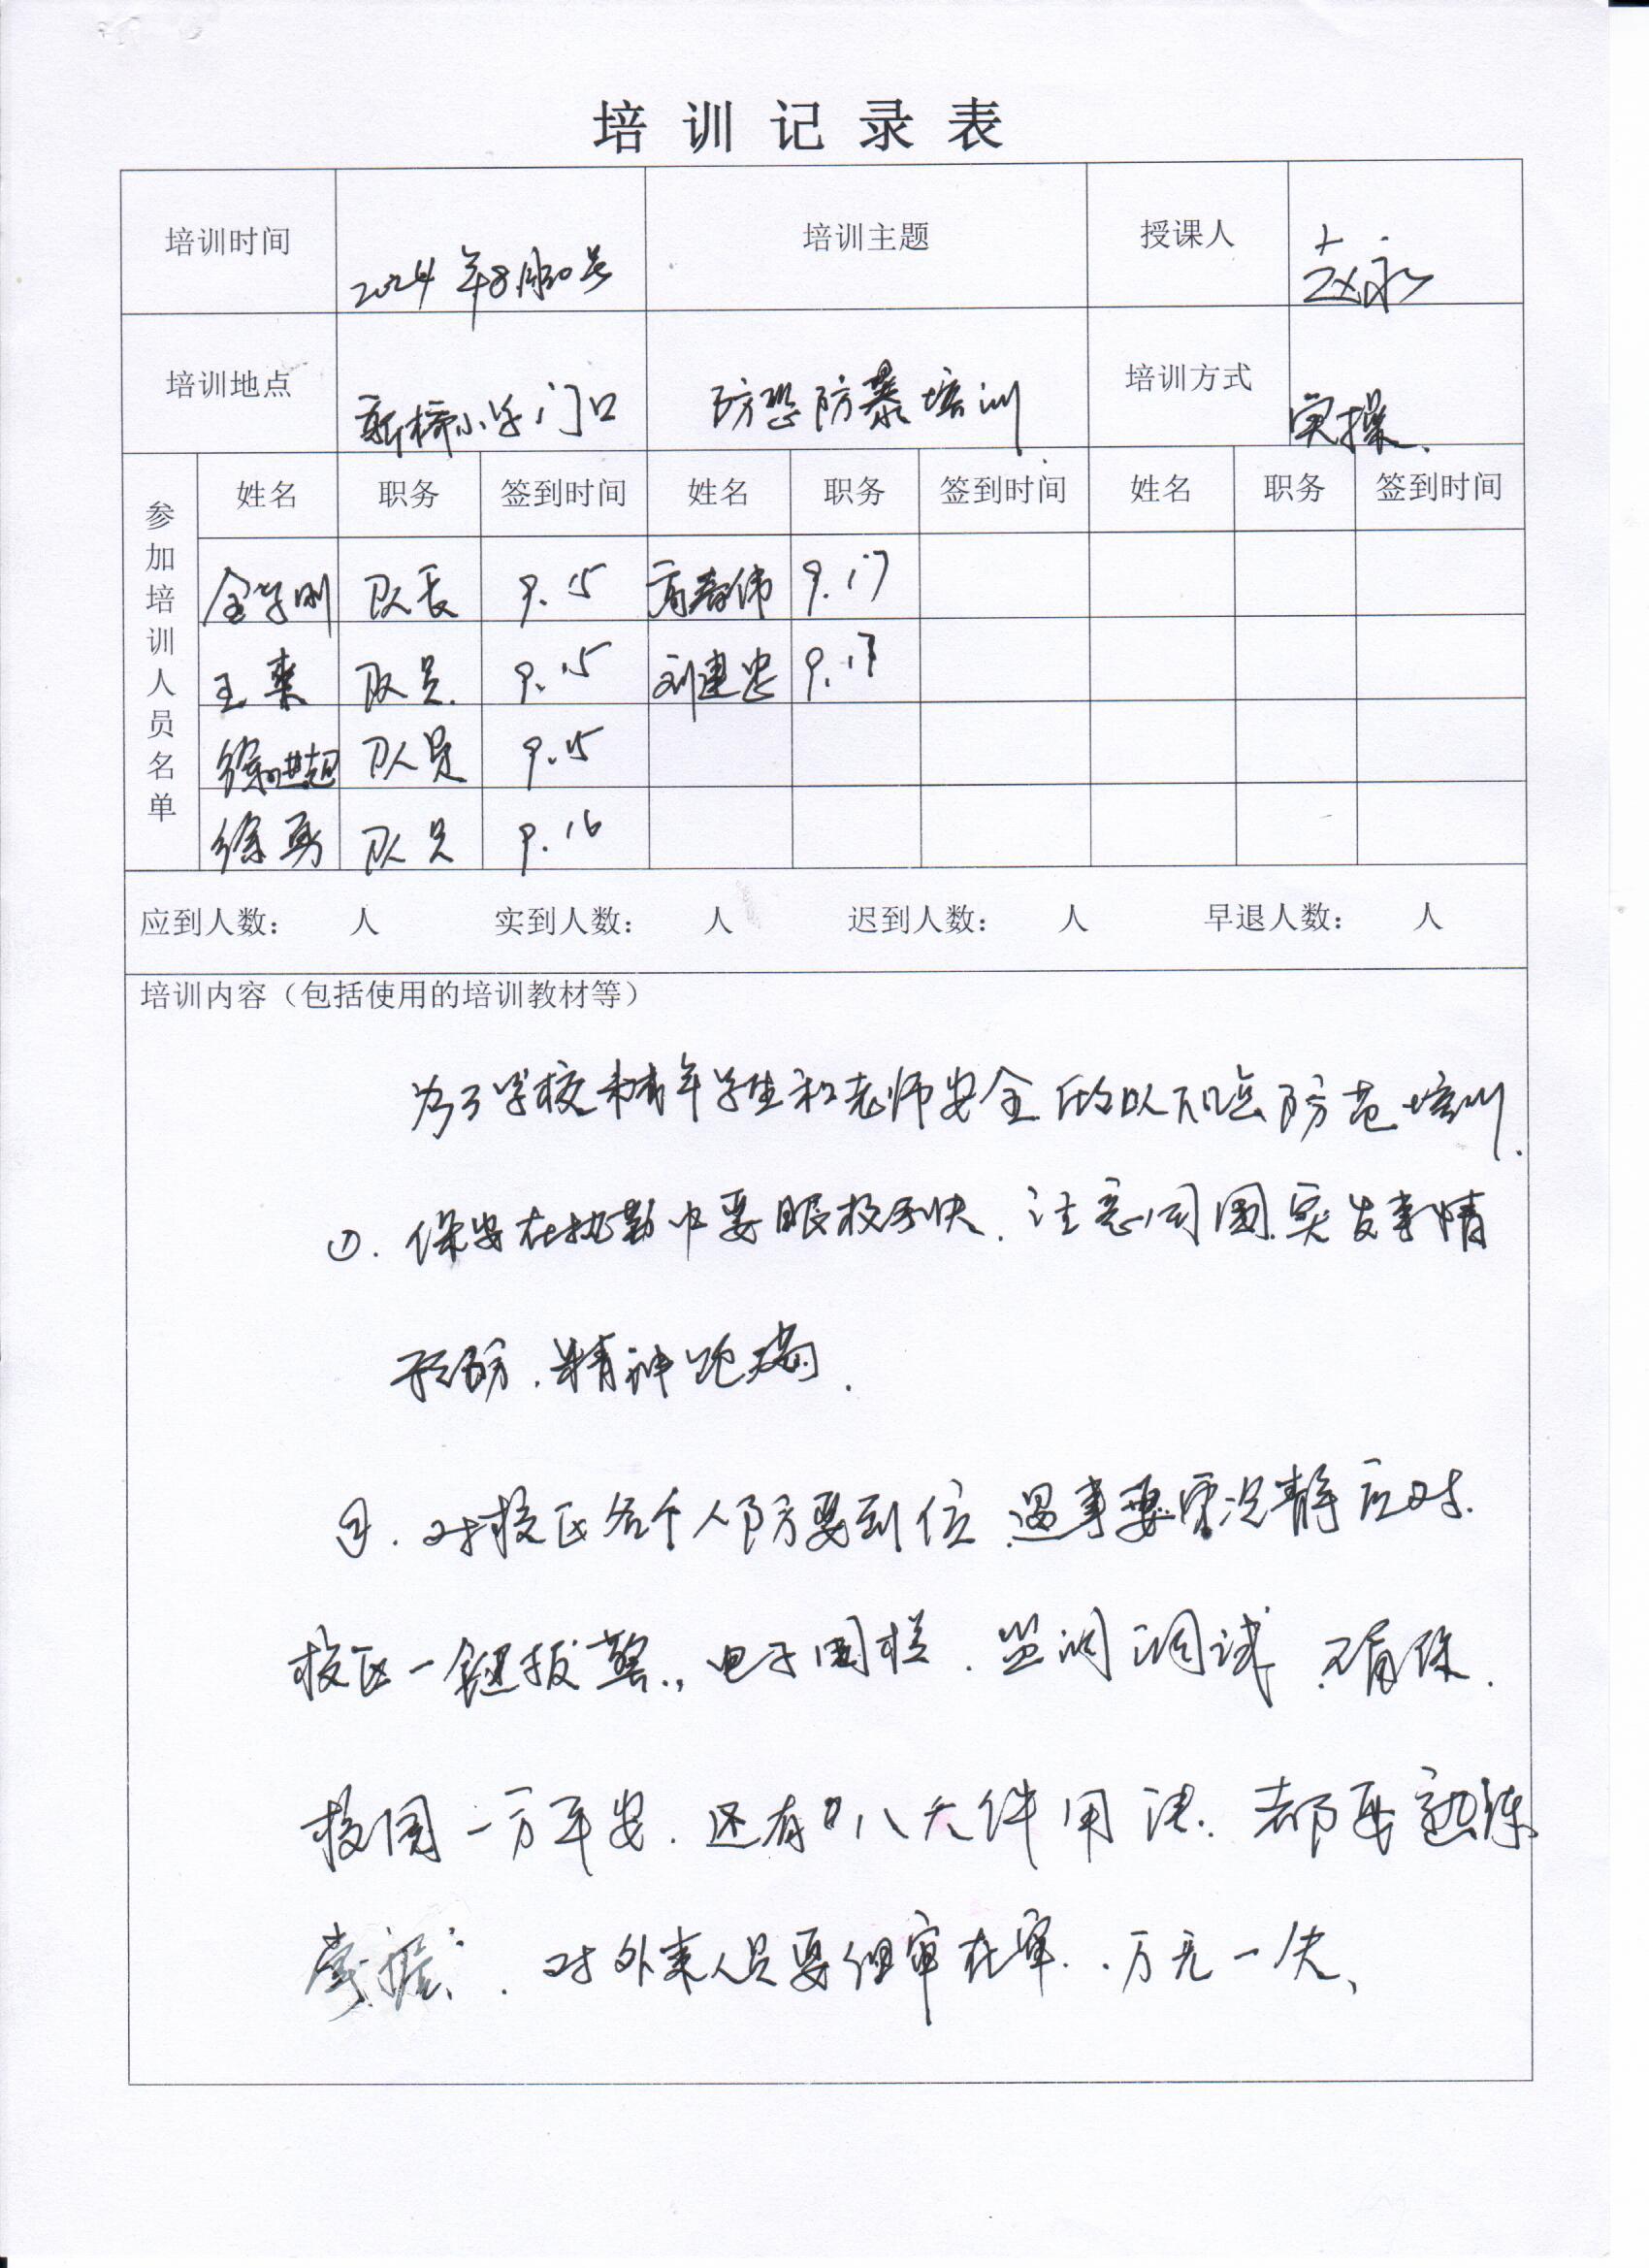 培训记录表
培训时间 2024年8月30号 培训主题 授课人 赵永
培训地点 新桥小学门口 防恐防暴培训 培训方式 实操.
参加培训人员名单
姓名 职务 签到时间 姓名 职务 签到时间 姓名 职务 签到时间
队长 9.15 高春伟 9.17
王 队员. 9.15 刘建忠 9.17
徐世超 队员 9.15
徐勇 队员 9.16
应到人数： 人 实到人数： 人 迟到人数： 人 早退人数： 人
培训内容（包括使用的培训教材等）
为了学校青年学生和老师安全 做以下 防范培训.
①. 保安在执勤中要眼 快. 注意周围.突发事情
预防.精神饱满.
②. 对校区各个人防要到位.遇事要 沉静应对.
校区一键报警., 电子围栏. 监 调试.
校园一方平安. 还有 八大件用法. 都要熟练
掌握. 对外来人员要细审在审. 万无一失、